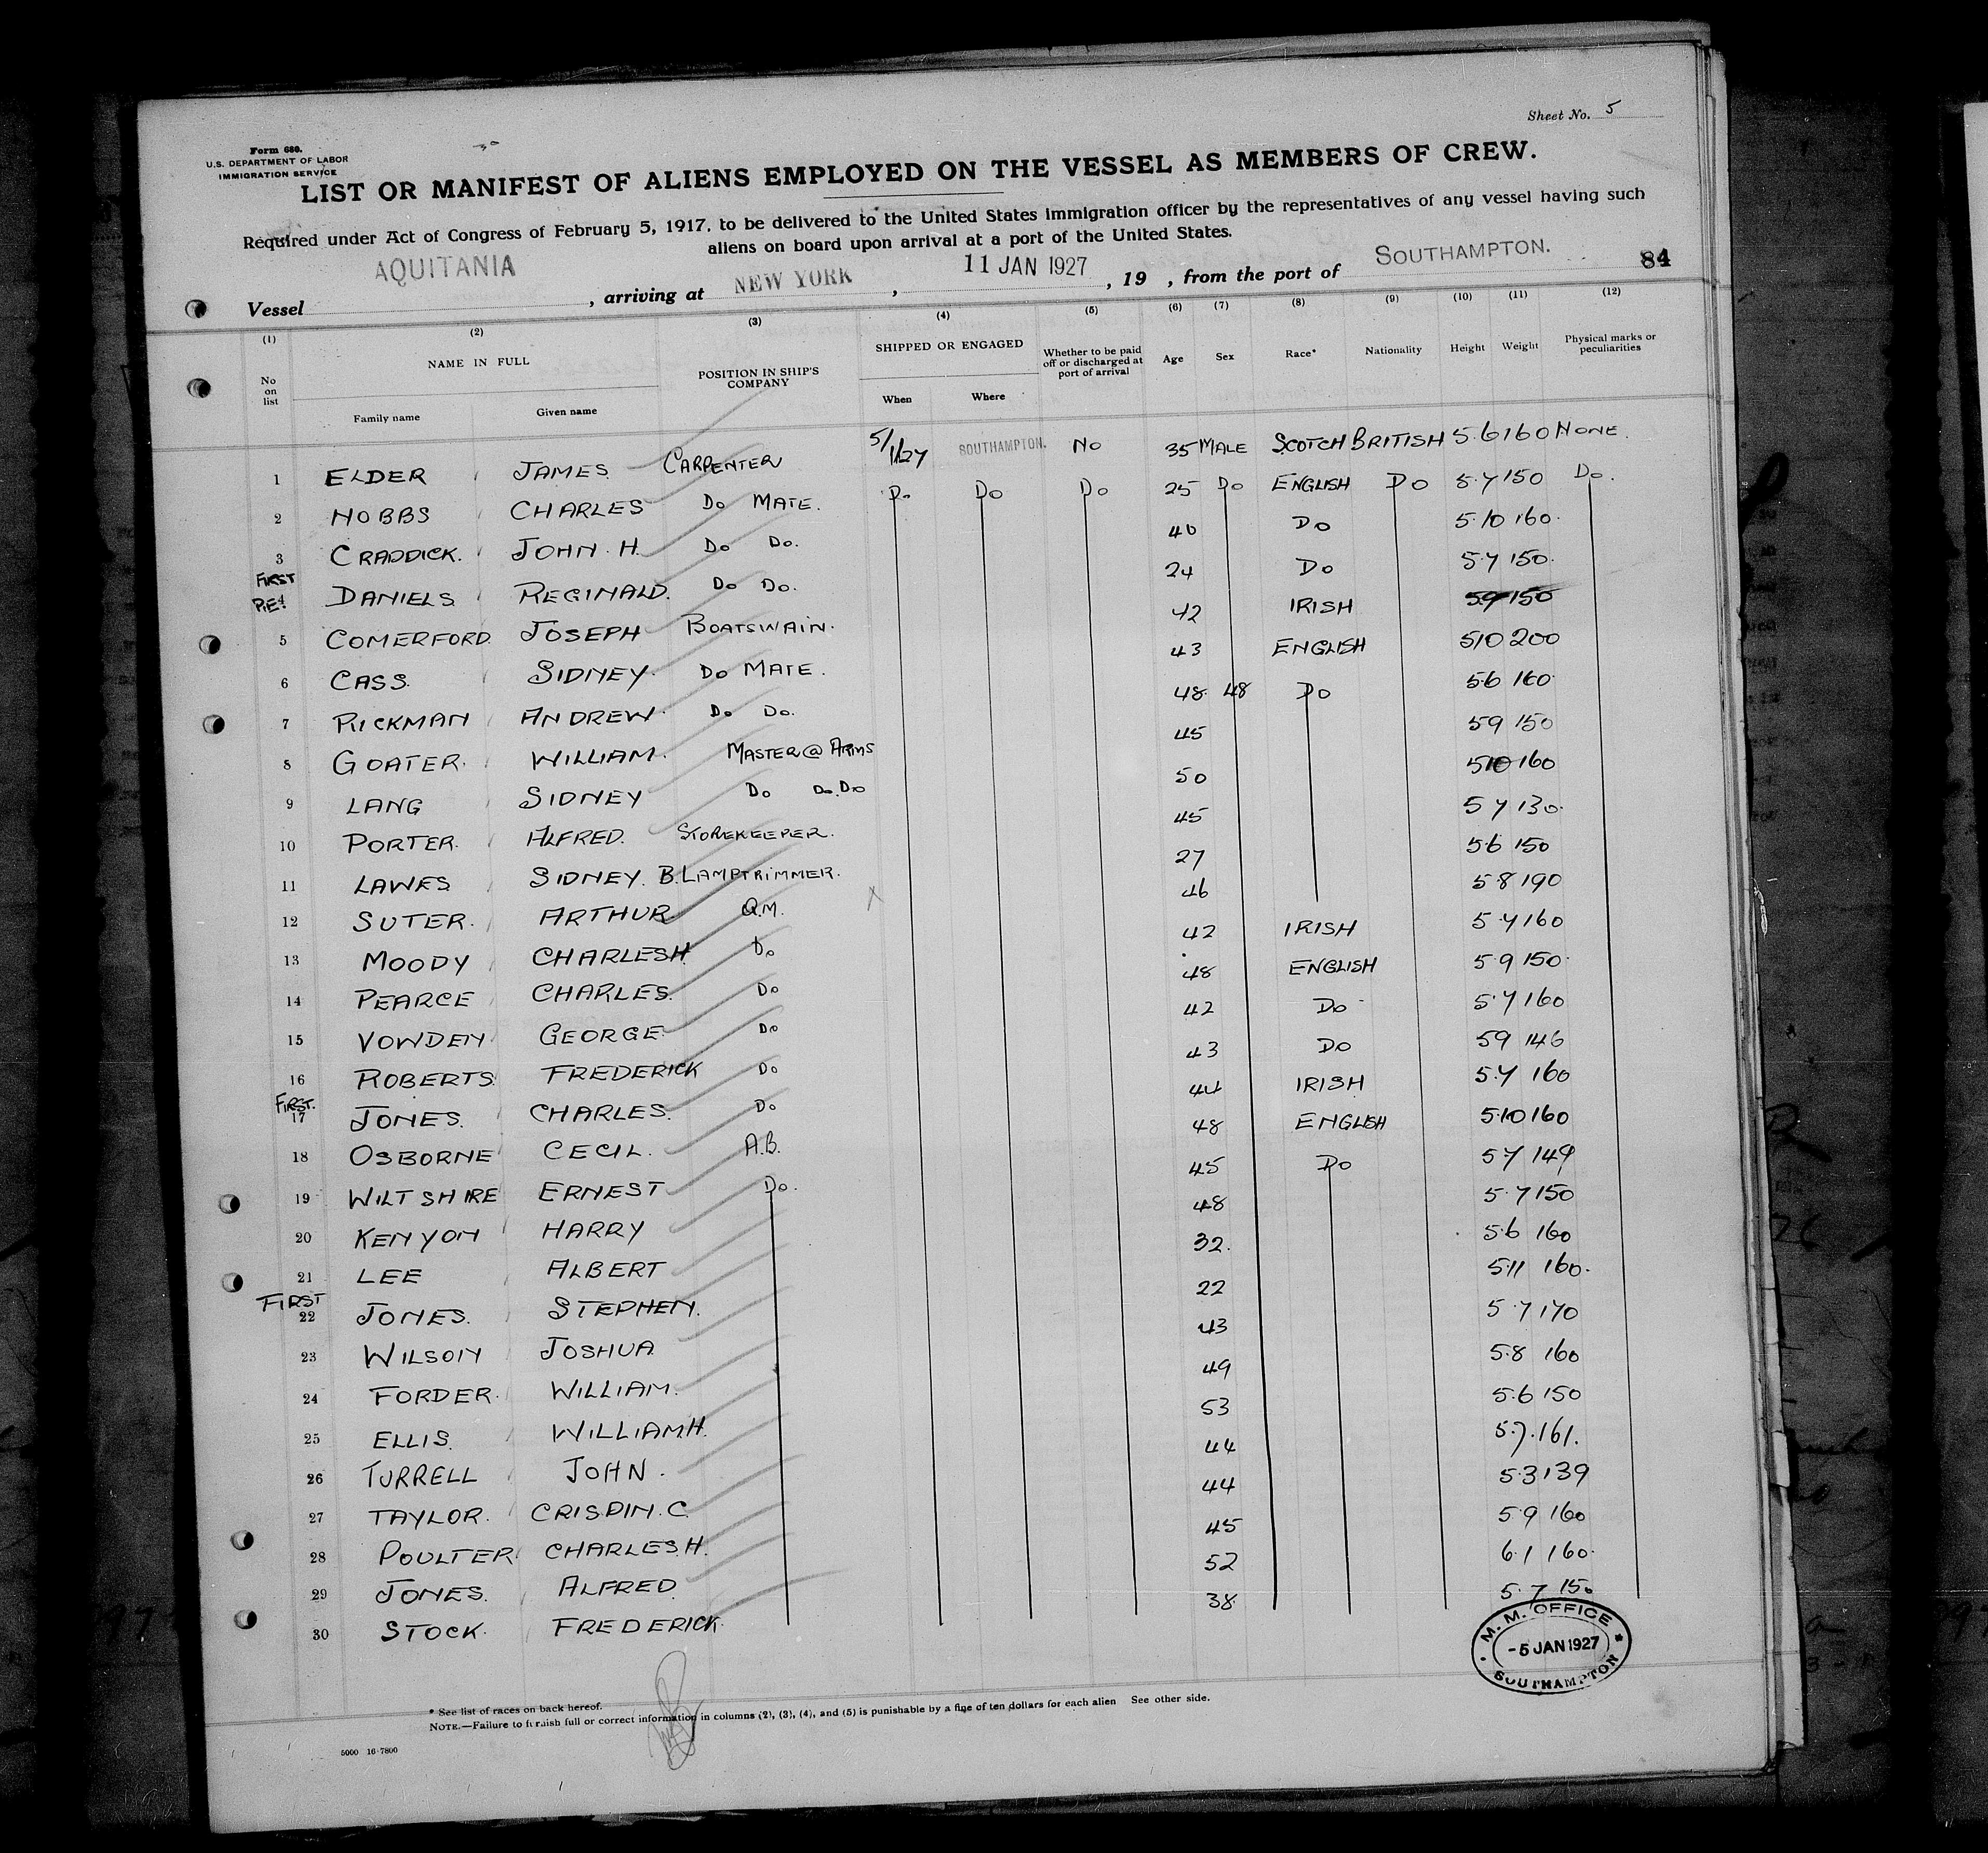 Sheet No. 5
Form 680.
U.S. DEPARTMENT OF LABOR
IMMIGRATION SERVICE
LIST OR MANIFEST OF ALIENS EMPLOYED ON THE VESSEL AS MEMBERS OF CREW.
Required under Act of Congress of February 5, 1917, to be delivered to the United States immigration officer by the representatives of any vessel having such
aliens on board upon arrival at a port of the United States.
Vessel AQUITANIA, arriving at NEW YORK, 11 JAN 1927, 19 , from the port of SOUTHAMPTON. 84
(1) (2) (3) (4) (5) (6) (7) (8) (9) (10) (11) (12)
No on list NAME IN FULL POSITION IN SHIP'S COMPANY SHIPPED OR ENGAGED Whether to be paid off or discharged at port of arrival Age Sex Race* Nationality Height Weight Physical marks or peculiarities
Family name Given name When Where
1 ELDER JAMES CARPENTER 5/1/27 SOUTHAMPTON. NO 35 MALE SCOTCH BRITISH 5.6 160 NONE.
2 HOBBS CHARLES DO MATE. DO DO DO 25 DO ENGLISH DO 5.7 150 DO.
3 CRADDICK. JOHN H. DO DO. 40 DO 5.10 160.
FIRST
P.E.
4 DANIELS REGINALD. DO DO. 24 DO 5.7 150.
5 COMERFORD. JOSEPH BOATSWAIN. 42 IRISH 5.9 150
6 CASS. SIDNEY. DO MATE. 43 ENGLISH 510 200
7 RICKMAN ANDREW. DO DO. 48. 48 DO 5.6 160.
8 GOATER. WILLIAM. MASTER@ARMS 45 59 150
9 LANG SIDNEY DO DO.DO 50 510 160
10 PORTER. ALFRED. STOREKEEPER. 45 57 130.
11 LAWES SIDNEY. B.LAMPTRIMMER. 27 56 150
12 SUTER. ARTHUR Q.M. 46 58 190
13 MOODY CHARLES H. DO 42 IRISH 5.7 160
14 PEARCE CHARLES. DO 48 ENGLISH 5.9 150.
15 VOWDEN GEORGE. DO 42 DO 5.7 160
16 ROBERTS. FREDERICK DO 43 DO 59 146
FIRST.
17 JONES. CHARLES. DO 44 IRISH 5.7 160
18 OSBORNE CECIL. A.B. 48 ENGLISH 510 160
19 WILTSHIRE ERNEST DO. 45 DO 57 149
20 KENYON HARRY 48 5.7 150
21 LEE ALBERT 32. 5.6 160
FIRST
22 JONES. STEPHEN. 22 511 160.
23 WILSON JOSHUA 43 5.7 170
24 FORDER. WILLIAM. 49 5.8 160
25 ELLIS. WILLIAM.H. 53 5.6 150
26 TURRELL JOHN. 44 5.7.161.
27 TAYLOR. CRISPIN.C. 44 5.3 139
28 POULTER CHARLES.H. 45 5.9 160
29 JONES. ALFRED. 52 6.1 160.
30 STOCK. FREDERICK. 38 5.7 150
M. M. OFFICE
-5 JAN 1927
SOUTHAMPTON
* See list of races on back hereof.
NOTE.—Failure to furnish full or correct information in columns (2), (3), (4), and (5) is punishable by a fine of ten dollars for each alien See other side.
5000 16-7800